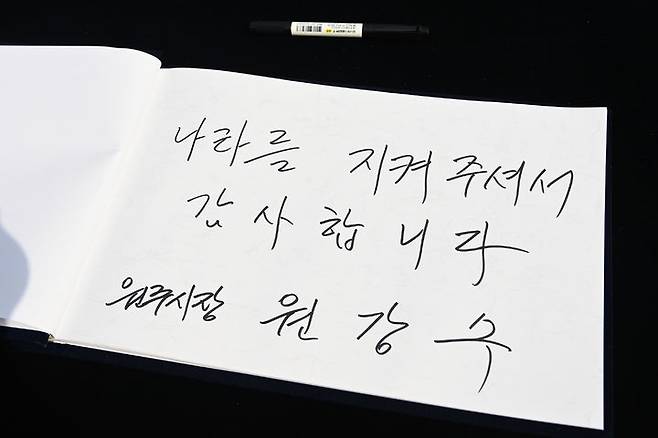 나라를 지켜 주셔서
감사합니다
원주시장 원강수